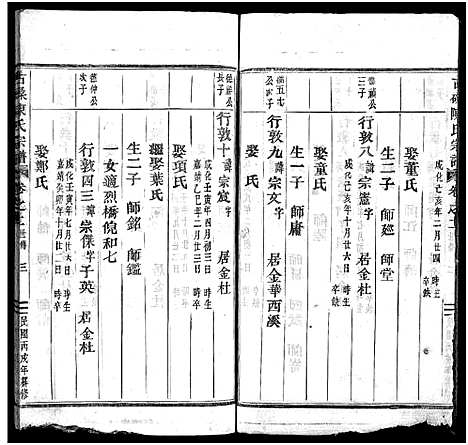 成化己亥年二月廿四
時生
卒缺
娶童氏
生二子 師㢠 師堂
德福公
三子
行敦八諱宗憲字 居金杜
成化 亥年十月廿六日
時生
卒缺
娶童氏
生一子 師庸
公
次子
行敦九諱宗文字 居金華西溪
娶 氏
公
長子
行敦十諱宗宸字 居金杜
成化壬寅年四月初三日 時生
嘉靖乙巳年二月初三日 時卒
娶項氏
繼娶葉氏
生二子 師銘 師鑑
一女適烈橋倪和七
德仲公
次子
行敦四三諱宗傑字子英 居金杜
成化壬寅年七月廿六日 時生
嘉靖癸卯年十月廿三日 時卒
娶鄭氏
陳氏宗譜 卷之 三
民國丙戌年重修